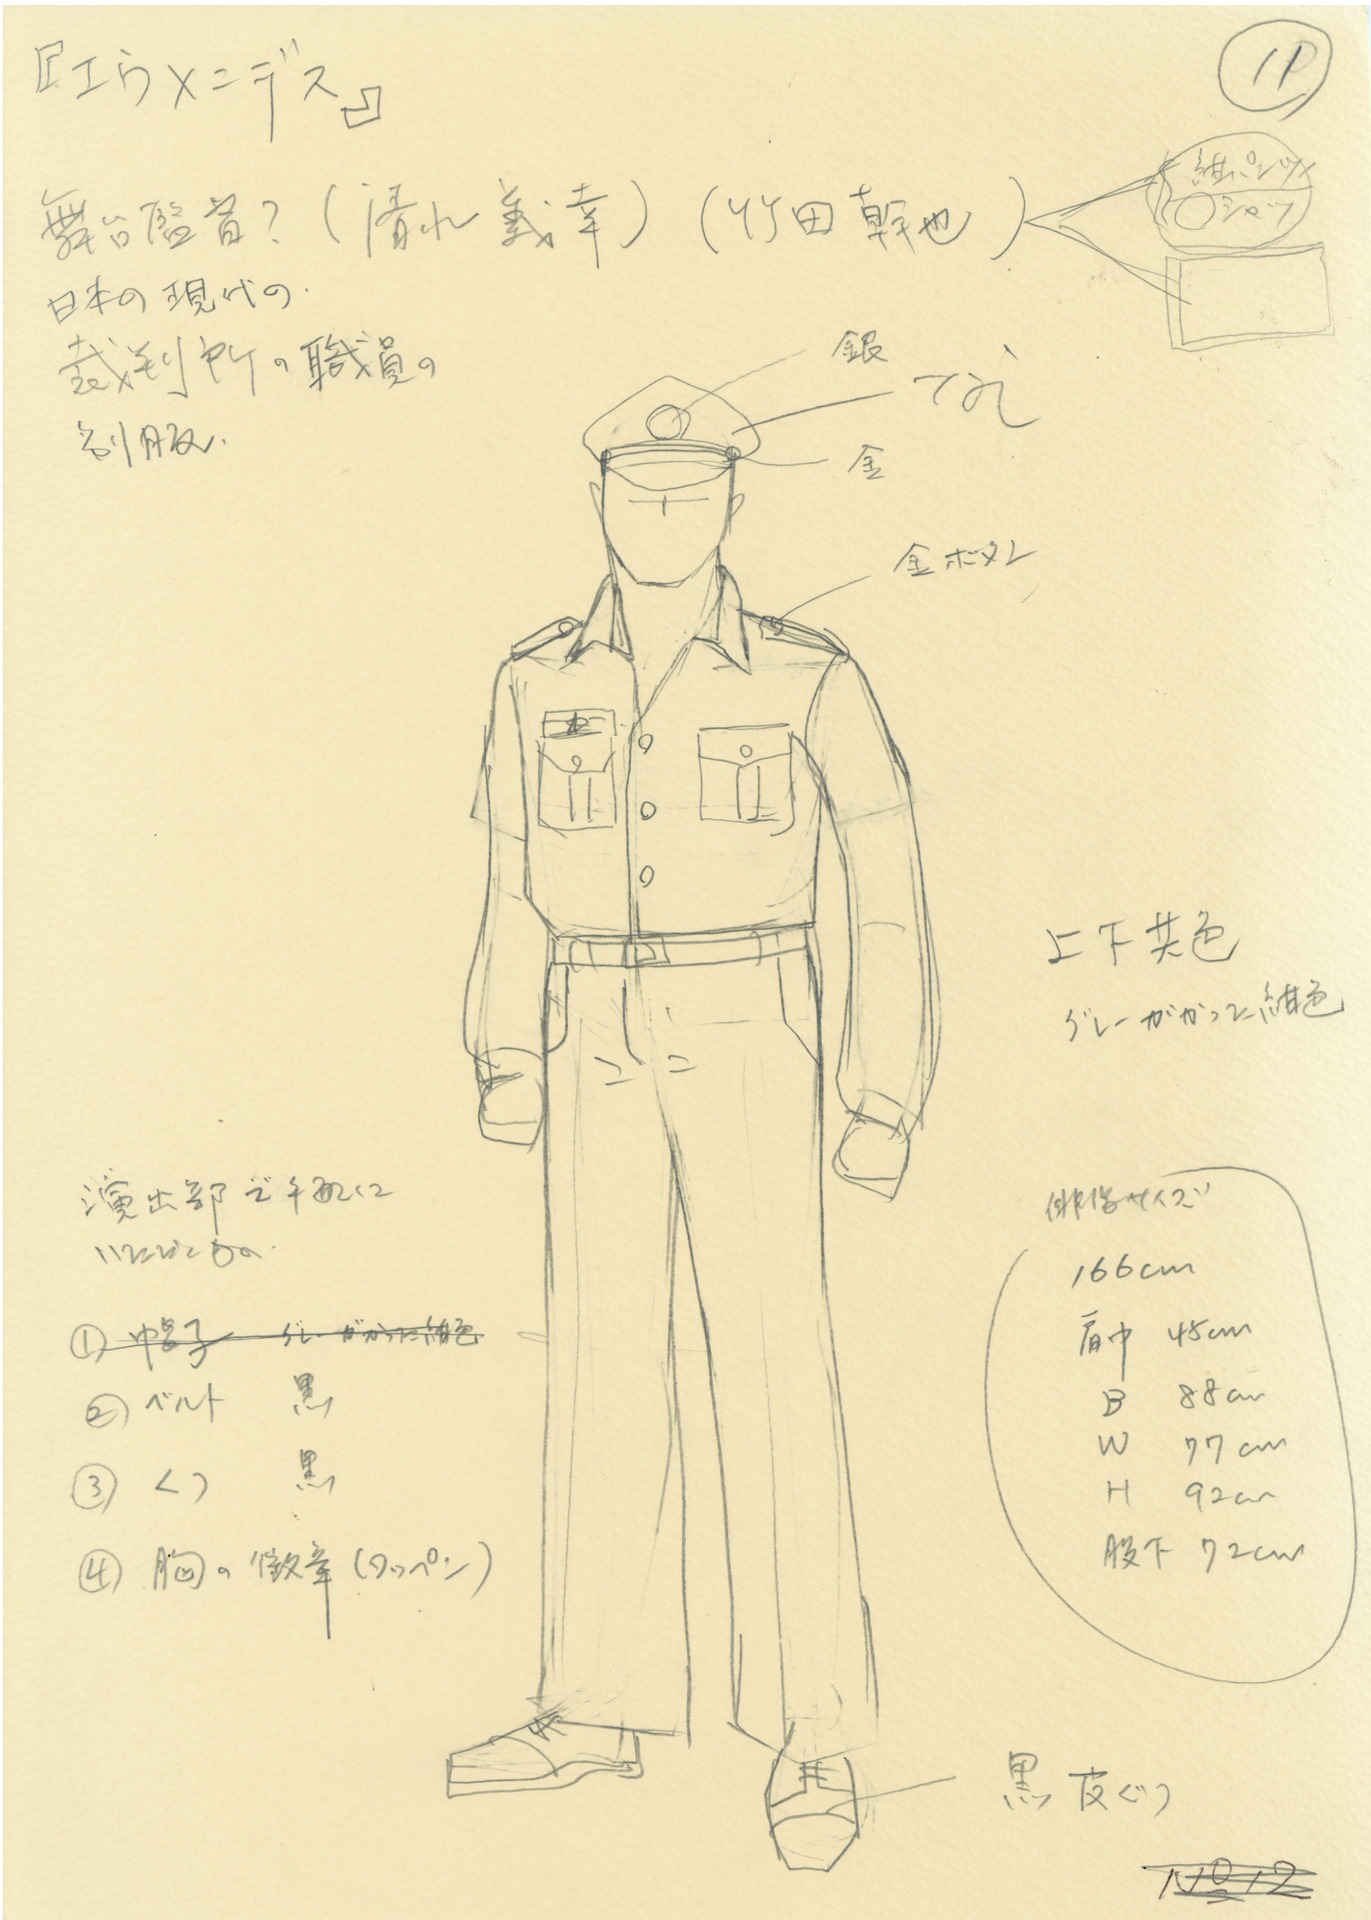 『エウメニデス』
1P
舞台監督?(清水 義幸)(竹田 幹也)
紺パンツ
シャツ
日本の現代の
裁判所の職員の
制服.
銀
なし
金
金ボタン
上下共色
グレーがかった紺色
演出部で手配に
いただくもの
① 帽子 グレーがかった紺色
② ベルト 黒
③ くつ 黒
④ 胸の徽章(ワッペン)
俳優サイズ
166cm
肩巾 45cm
B 88cm
W 77cm
H 92cm
股下 72cm
黒皮ぐつ
No12